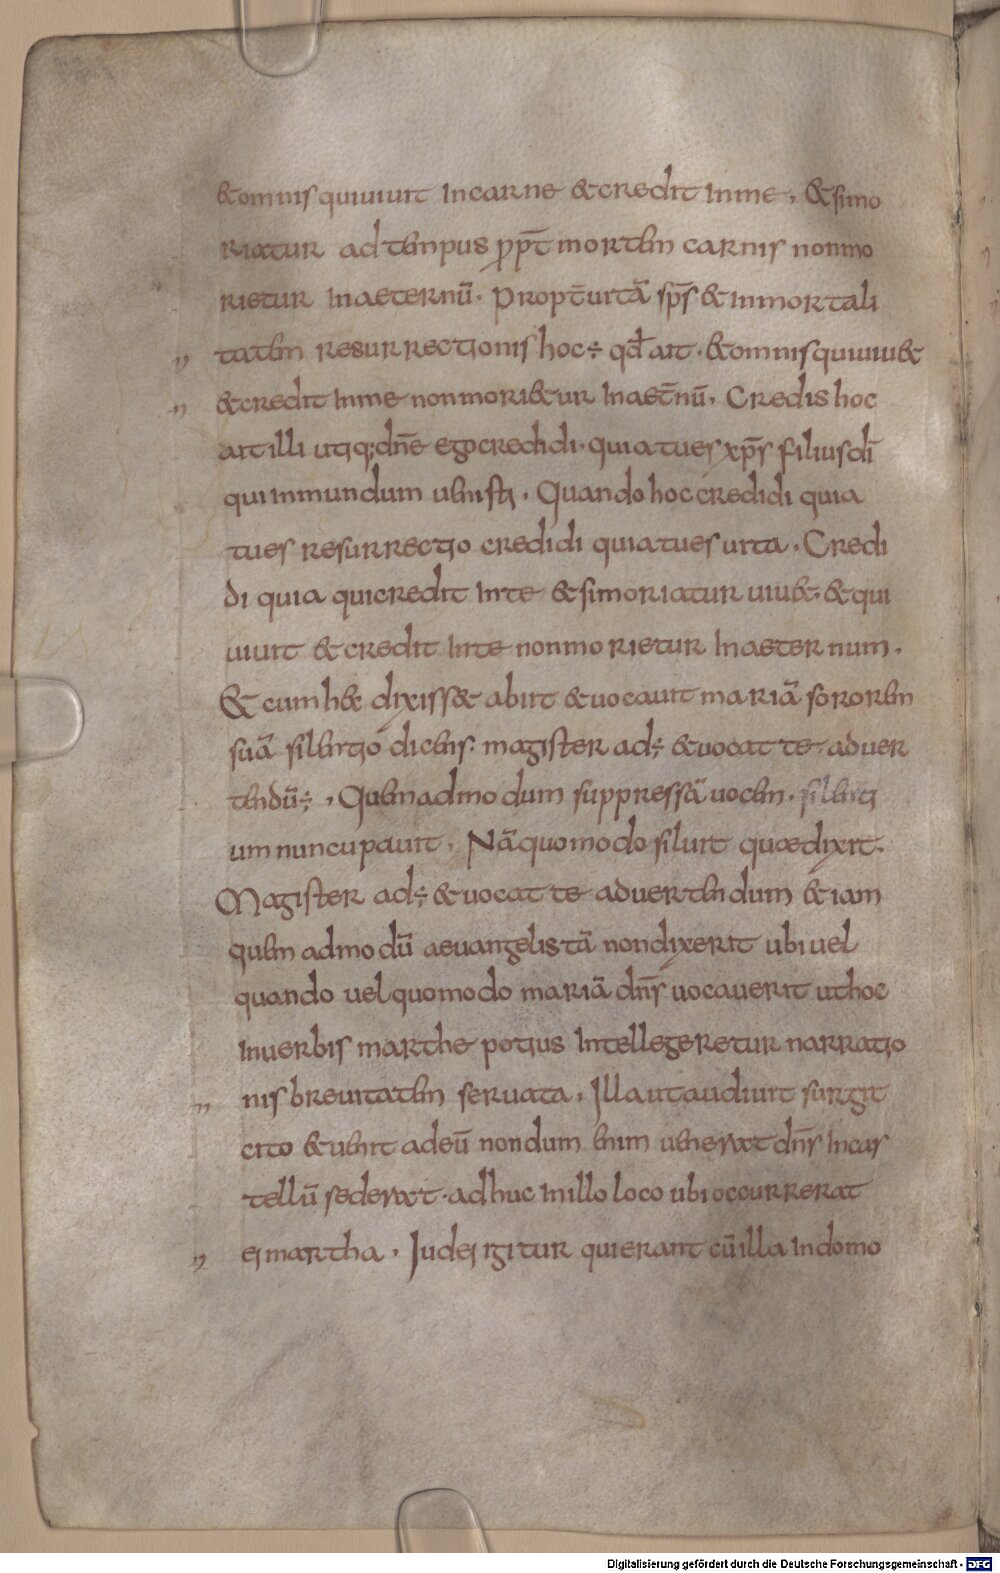 &omnis quiuiuit incarne &credit inme, &simo
riatur ad tempus ꝓpt̄ mortem carnis nonmo
rietur inaeternū. Propt̄ uitā sp̄s &inmortali
„ tatem resurrectionis hoc ÷ qd̄ ait. &omnis quiuiu&
„ &credit inme nonmori&ur inaet̄nū. Credis hoc
ait illi utiq; dn̄e ego credidi. quia tues xp̄s filius dī
qui inmundum uenisti. Quando hoc credidi quia
tues resurrectio credidi quia tues uita. Credi
di quia quicredit inte &simoriatur uiu&. &qui
uiuit &credit inte nonmorietur inaeternum.
&cum h& dixiss& abiit &uocauit mariā sororem
suā silentio dicens. magister ad÷ &uocat te. aduer
tendū÷, Quemadmodum suppressā uocem. silenti
um nuncupauit. Nā quomodo siluit quae dixit.
Magister ad÷ &uocat te aduertendum &iam
quem admodū aeuangelistā nondixerit ubi uel
quando uel quomodo mariā dn̄s uocauerit uthoc
inuerbis marthe potius intellegeretur narratio
„ nis breuitatem seruata. Illa utaudiuit surgit
cito &uenit adeū nondum enim uenerat dn̄s incas
tellū sederat. adhuc inillo loco ubi occurrerat
„ ei martha. Iudei igitur quierant cū illa indomo
Digitalisierung gefördert durch die Deutsche Forschungsgemeinschaft - DFG